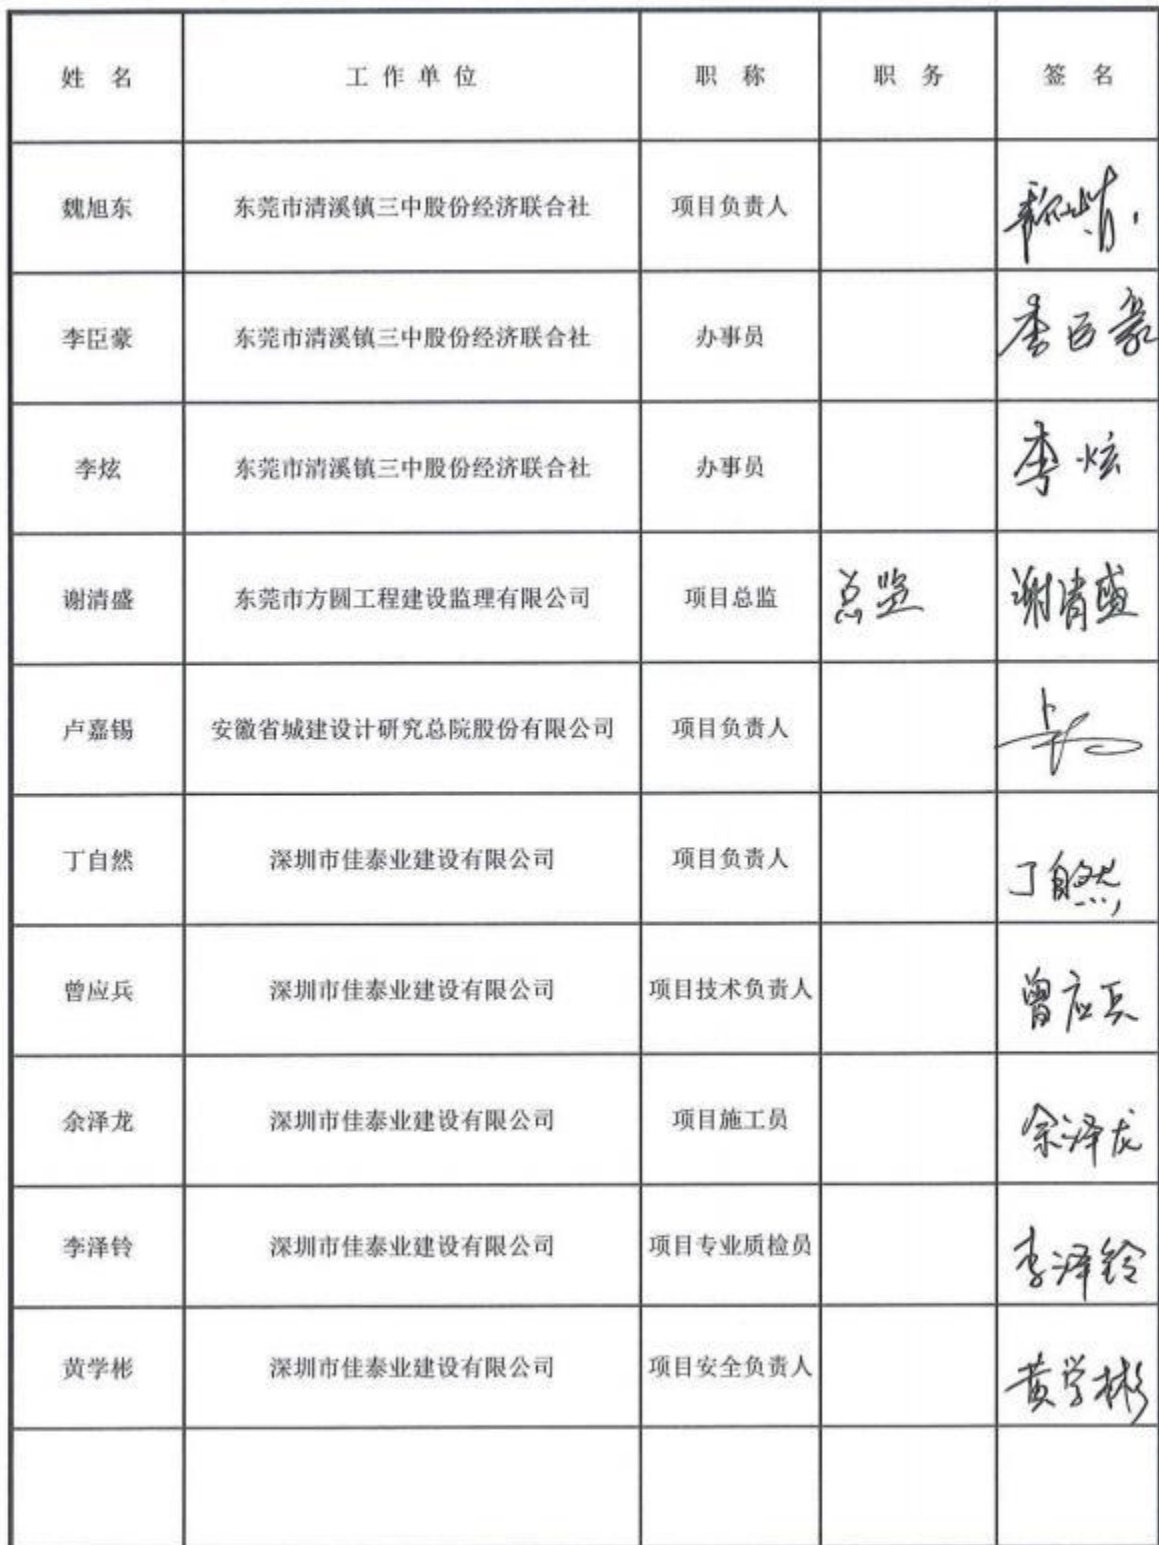 姓 名 工作单位 职 称 职 务 签 名
魏旭东 东莞市清溪镇三中股份经济联合社 项目负责人
李臣豪 东莞市清溪镇三中股份经济联合社 办事员 李臣豪
李炫 东莞市清溪镇三中股份经济联合社 办事员 李炫
谢清盛 东莞市方圆工程建设监理有限公司 项目总监 总监 谢清盛
卢嘉锡 安徽省城建设计研究总院股份有限公司 项目负责人
丁自然 深圳市佳泰业建设有限公司 项目负责人 丁自然
曾应兵 深圳市佳泰业建设有限公司 项目技术负责人 曾应兵
余泽龙 深圳市佳泰业建设有限公司 项目施工员 余泽龙
李泽铃 深圳市佳泰业建设有限公司 项目专业质检员 李泽铃
黄学彬 深圳市佳泰业建设有限公司 项目安全负责人 黄学彬